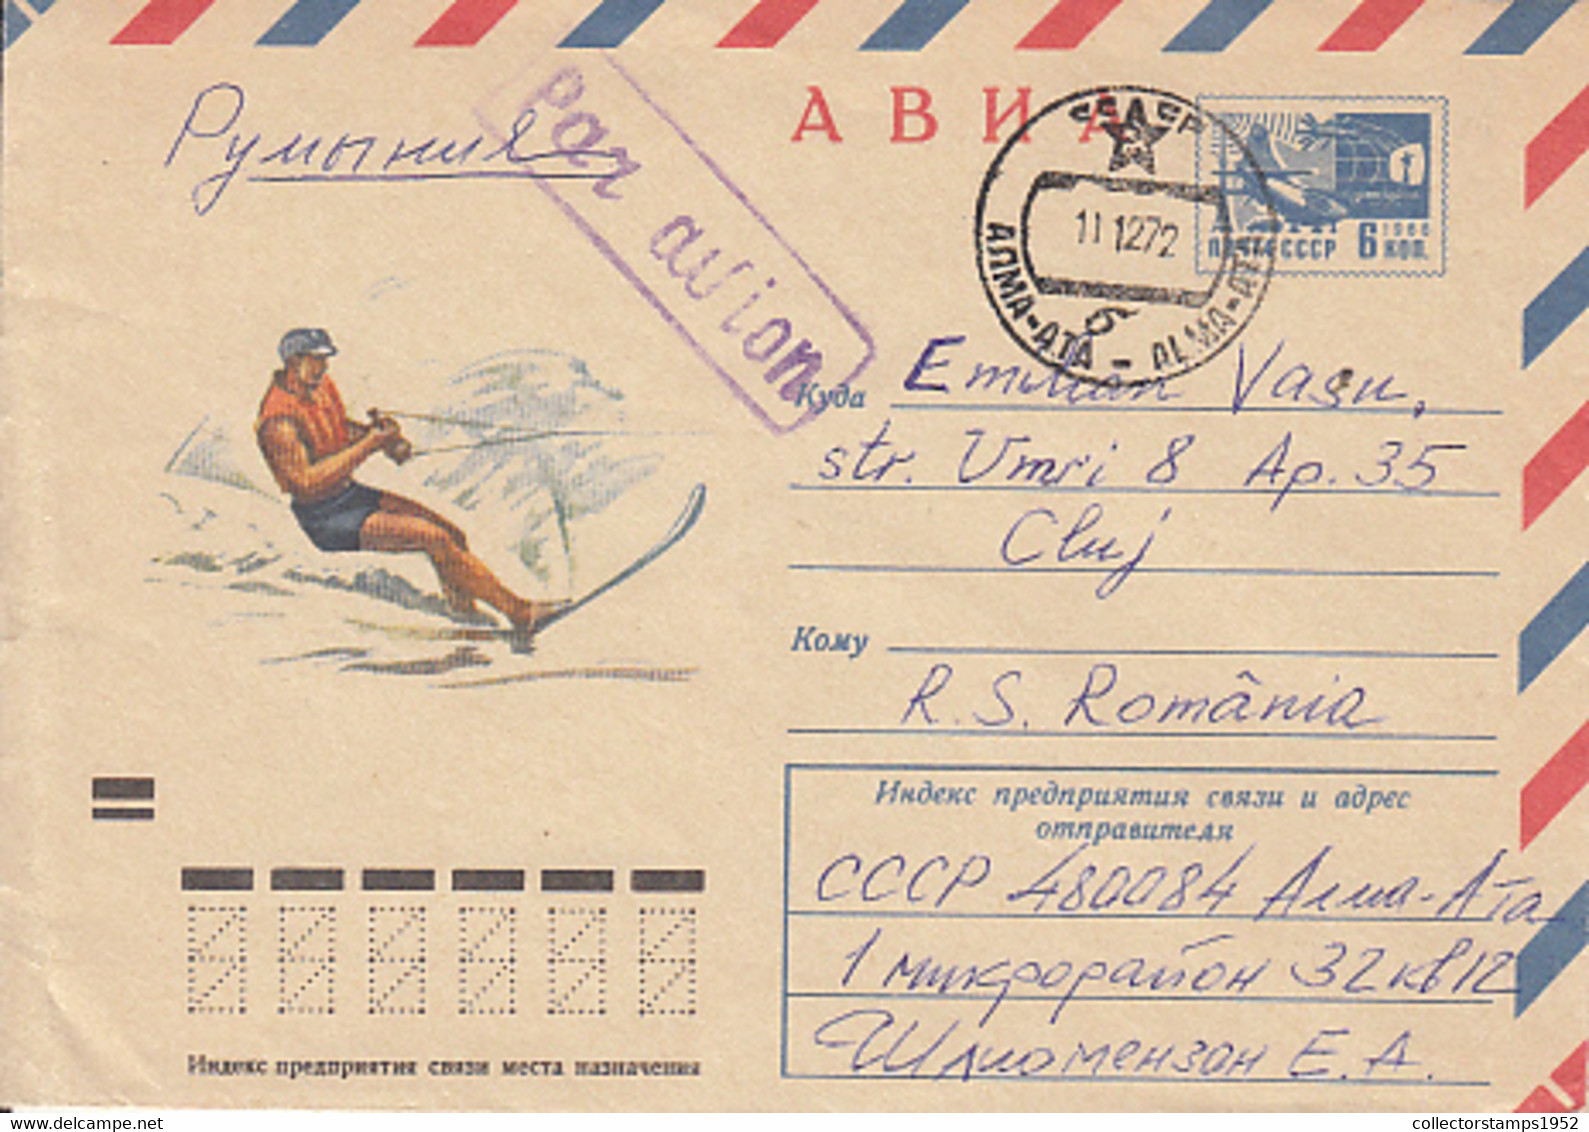 АВИА
Румыния
Par avion
СССР
11 12 72
б
АЛМА-АТА - ALMA-ATA
1966
ПОЧТА СССР 6 КОП.
Куда Emilian Vasu,
str. Unirii 8 Ap. 35
Cluj
Кому
R. S. România
Индекс предприятия связи и адрес
отправителя
СССР 480084 Алма-Ата
1 микрорайон 32 кв 12
Шлиомензон Е. А.
Индекс предприятия связи места назначения
collectorstamps1952